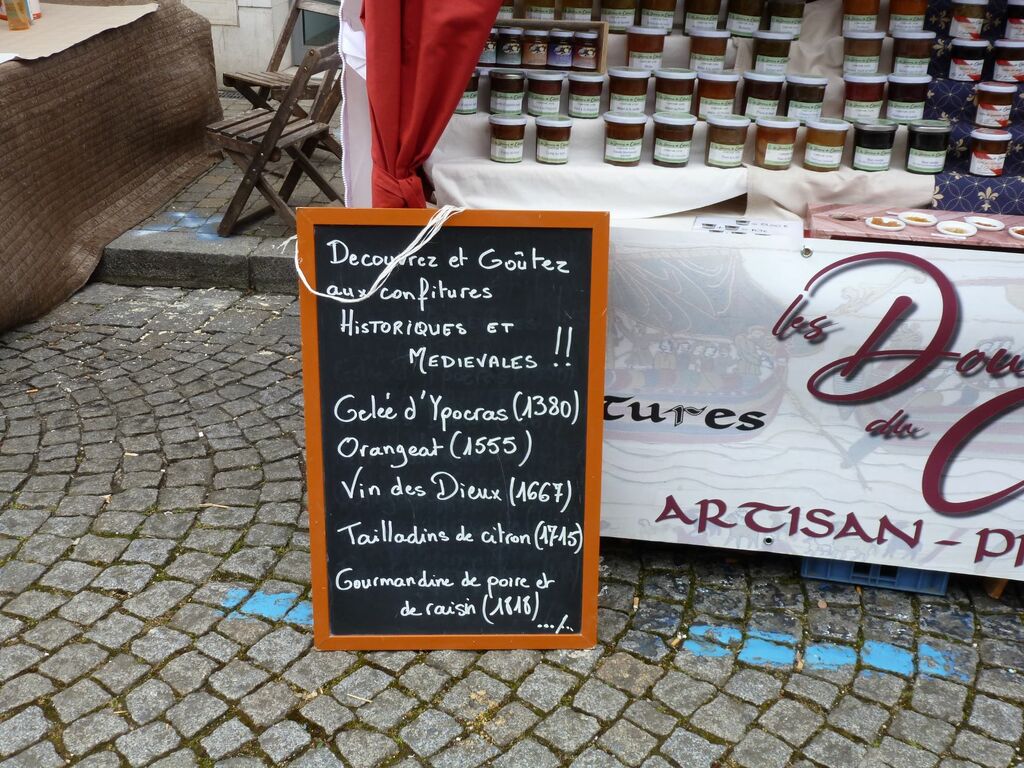 Decouvrez et Goûtez
aux confitures
HISTORIQUES ET
MEDIEVALES !!
Gelée d'Ypocras (1380)
Orangeat (1555)
Vin des Dieux (1667)
Tailladins de citron (1715)
Gourmandine de poire et
de raisin (1818)
.../...
tures
les Dou
du
ARTISAN - P